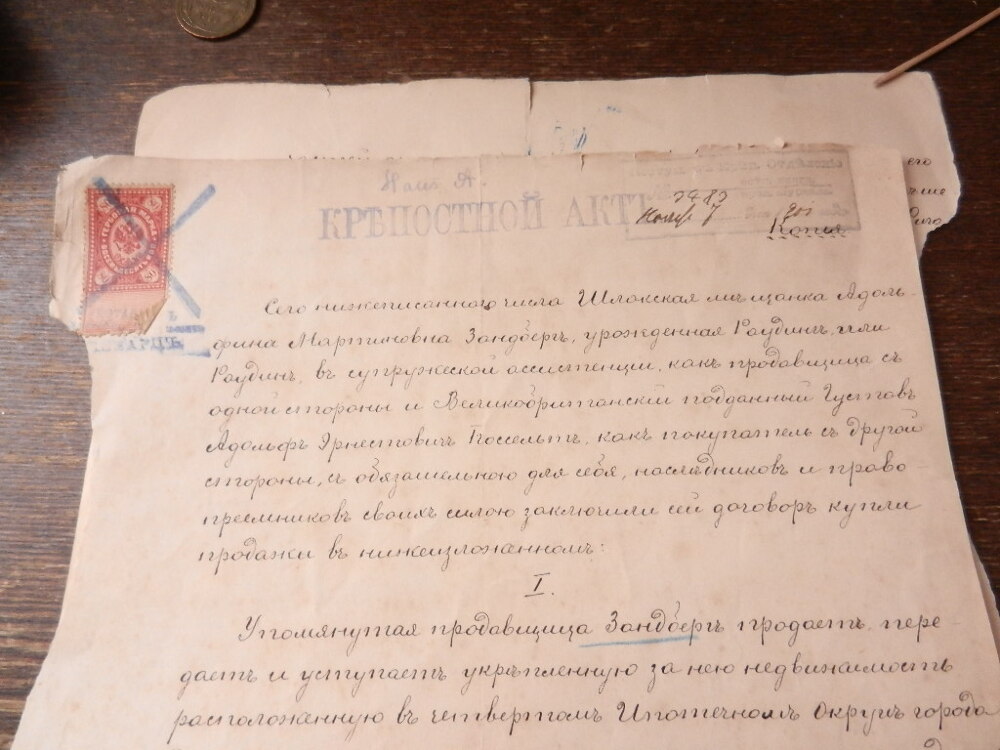 КРѢПОСТНОЙ АКТЪ
3983
Копія
Сего нижеписаннаго числа Шлокская мѣщанка Адоль-
фина Мартиновна Зандбергъ, урожденная Раудингъ, или
Раудинъ, въ супружеской ассистенціи, какъ продавщица съ
одной стороны и Великобританскій подданный Густавъ
Адольфъ Эрнестовичъ Коссельтъ, какъ покупатель съ другой
стороны, съ обязательною для себя, наслѣдниковъ и право-
преемниковъ своихъ силою заключили сей договоръ купли
продажи въ нижеизложенномъ:
I.
Упомянутая продавщица Зандбергъ продаетъ, пере-
даетъ и уступаетъ укрѣпленную за нею недвижимость
расположенную въ четвертомъ Ипотечномъ Округѣ города